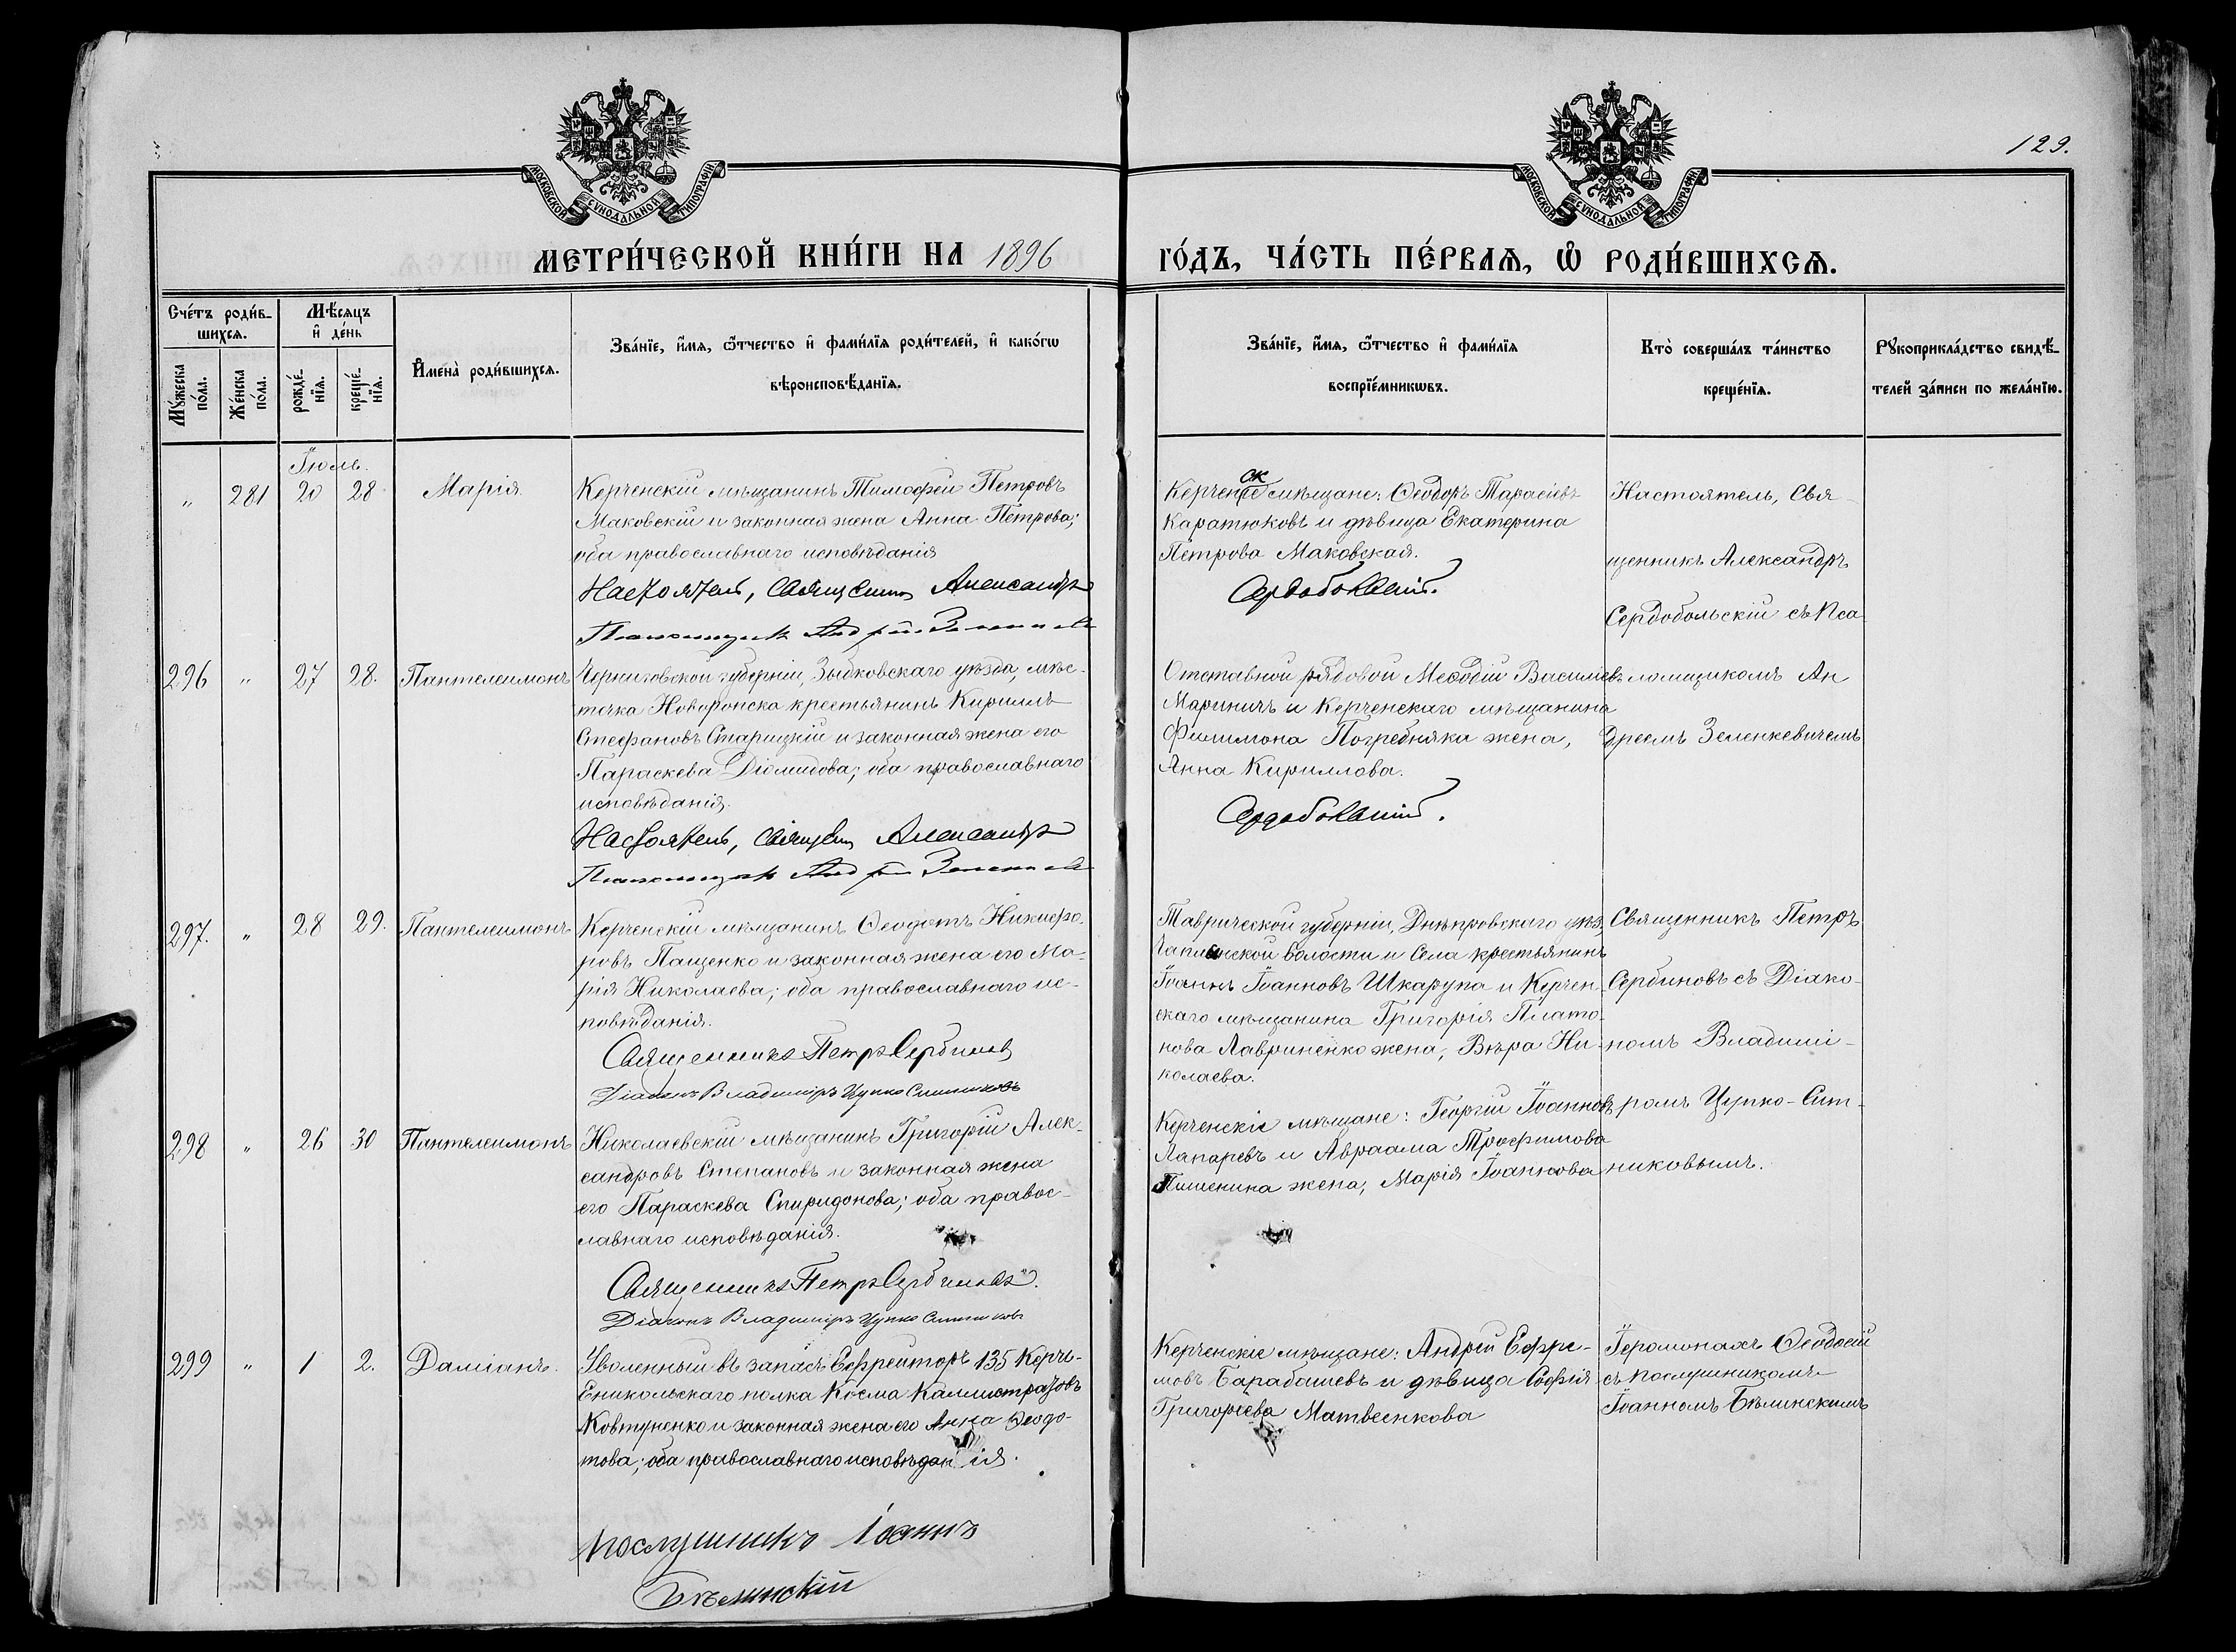 129.
МОСКОВСКОЙ СѴНОДАЛЬНОЙ ТИПОГРАФІИ
МОСКОВСКОЙ СѴНОДАЛЬНОЙ ТИПОГРАФІИ
МЕТРИ́ЧЕСКОЙ КНИ́ГИ НА 1896 ГО́ДЪ, ЧА́СТЬ ПЕ́РВАѦ, Ѡ҆ РОДИ́ВШИХСѦ.
Сче́тъ роди́в-
шихсѧ.
Мꙋ́жеска по́ла.
Же́нска по́ла.
Мѣ́сѧцъ
и҆ де́нь
рожде́-нїѧ.
креще́-нїѧ.
И҆мена̀ роди́вшихсѧ.
Зва́нїе, и҆́мѧ, ѻ҆́тчество и҆ фами́лїѧ роди́телей, и҆ како́гѡ
вѣроисповѣ́данїѧ.
Зва́нїе, и҆́мѧ, ѻ҆́тчество и҆ фами́лїѧ
воспрїе́мникѡвъ.
Кто̀ соверша́лъ та́инство
креще́нїѧ.
Рꙋкоприкла́дство свидѣ́-
телей за́писи по жела́нїю.
Іюль.
„ 281 20 28 Марія
Керченскій мѣщанинъ Тимофей Петровъ
Маковскій и законная жена Анна Петрова;
оба православнаго исповѣданія
Настоятель, Священникъ Александръ Сердобольскій.
Псаломщикъ Андрей Зеленкевичъ
Керченскіе мѣщане: Ѳеодоръ Тарасіевъ
Каратюковъ и дѣвица Екатерина
Петрова Маковская.
Настоятель, Свя-
щенникъ Александръ
Сердобольскій съ Пса-
ломщикомъ Ан
дреемъ Зеленкевичемъ
296 „ 27 28. Пантелеимонъ
Черниговской губерніи, Зыбковскаго уѣзда, мѣс-
точка Новоропска крестьянинъ Кириллъ
Стефановъ Старицкій и законная жена его
Параскева Діомидова; оба православнаго
исповѣданія.
Настоятель, Священ Александръ Сердобольскій.
Псаломщикъ Андрей Зеленкевичъ
Отставной рядовой Меѳодій Василіевъ
Мариничъ и Керченскаго мѣщанина
Филимона Погребняка жена,
Анна Кириллова.
297. „ 28 29. Пантелеимонъ
Керченскій мѣщанинъ Ѳеодотъ Никифо-
ровъ Пащенко и законная жена его Ма-
рія Николаева; оба православнаго ис-
повѣданія.
Священникъ Петръ Сербиновъ
Діаконъ Владиміръ Цупко Ситниковъ
Таврической губерніи, Днѣпровскаго уѣз,
Чаплинской волости и Села крестьянинъ
Іоаннъ Іоанновъ Шкарупа и Керчен-
скаго мѣщанина Григорія Плато-
нова Лавриненко жена, Вѣра Ни-
колаева.
Священникъ Петръ
Сербиновъ съ Діако-
номъ Владимі-
ромъ Цупко-Сит-
никовымъ.
298 „ 26 30 Пантелеимонъ
Николаевскій мѣщанинъ Григорій Алек-
сандровъ Степановъ и законная жена
его Параскева Спиридонова; оба правос-
лавнаго исповѣданія.
Священникъ Петръ Сербиновъ.
Діаконъ Владиміръ Цупко Ситниковъ
Керченскіе мѣщане: Георгій Іоанновъ
Лапаревъ и Авраама Трофимова
Пишенина жена, Марія Іоаннова
299 „ 1 2. Даміанъ.
Уволенный въ запасъ Ефрейторъ 135 Керчь-
Еникольскаго полка Косма Каллистратовъ
Ковтуненко и законная жена его Анна Ѳеодо-
това; оба православнаго исповѣданія.
Послушникъ Іоаннъ
Бѣлинскій
Керченскіе мѣщане: Андрей Ефре-
мовъ Барабашевъ и дѣвица Софія
Григорьева Матвеенкова
Іеромонахъ Ѳеодосій
съ послушникомъ
Іоанномъ Бѣлинскимъ